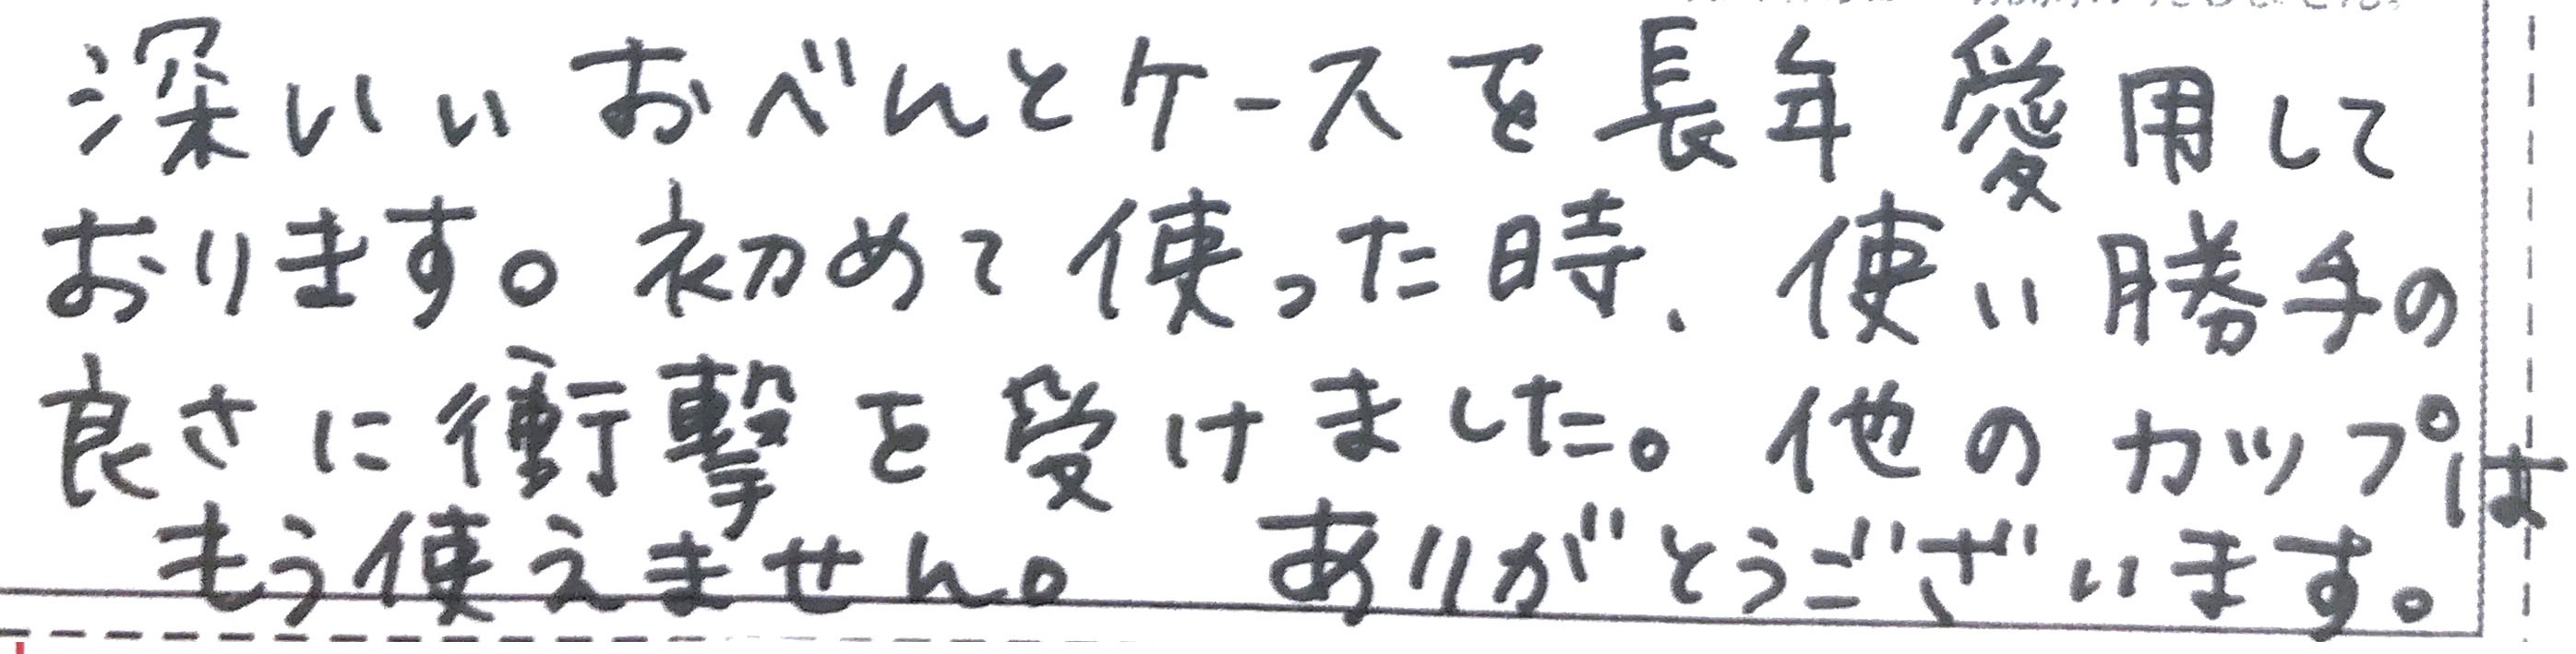 深いぃおべんとケースを長年愛用して
おります。初めて使った時、使い勝手の
良さに衝撃を受けました。他のカップは
もう使えません。 ありがとうございます。